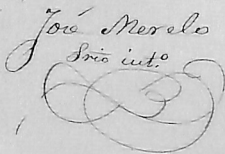 José Merelo
Srio int.º